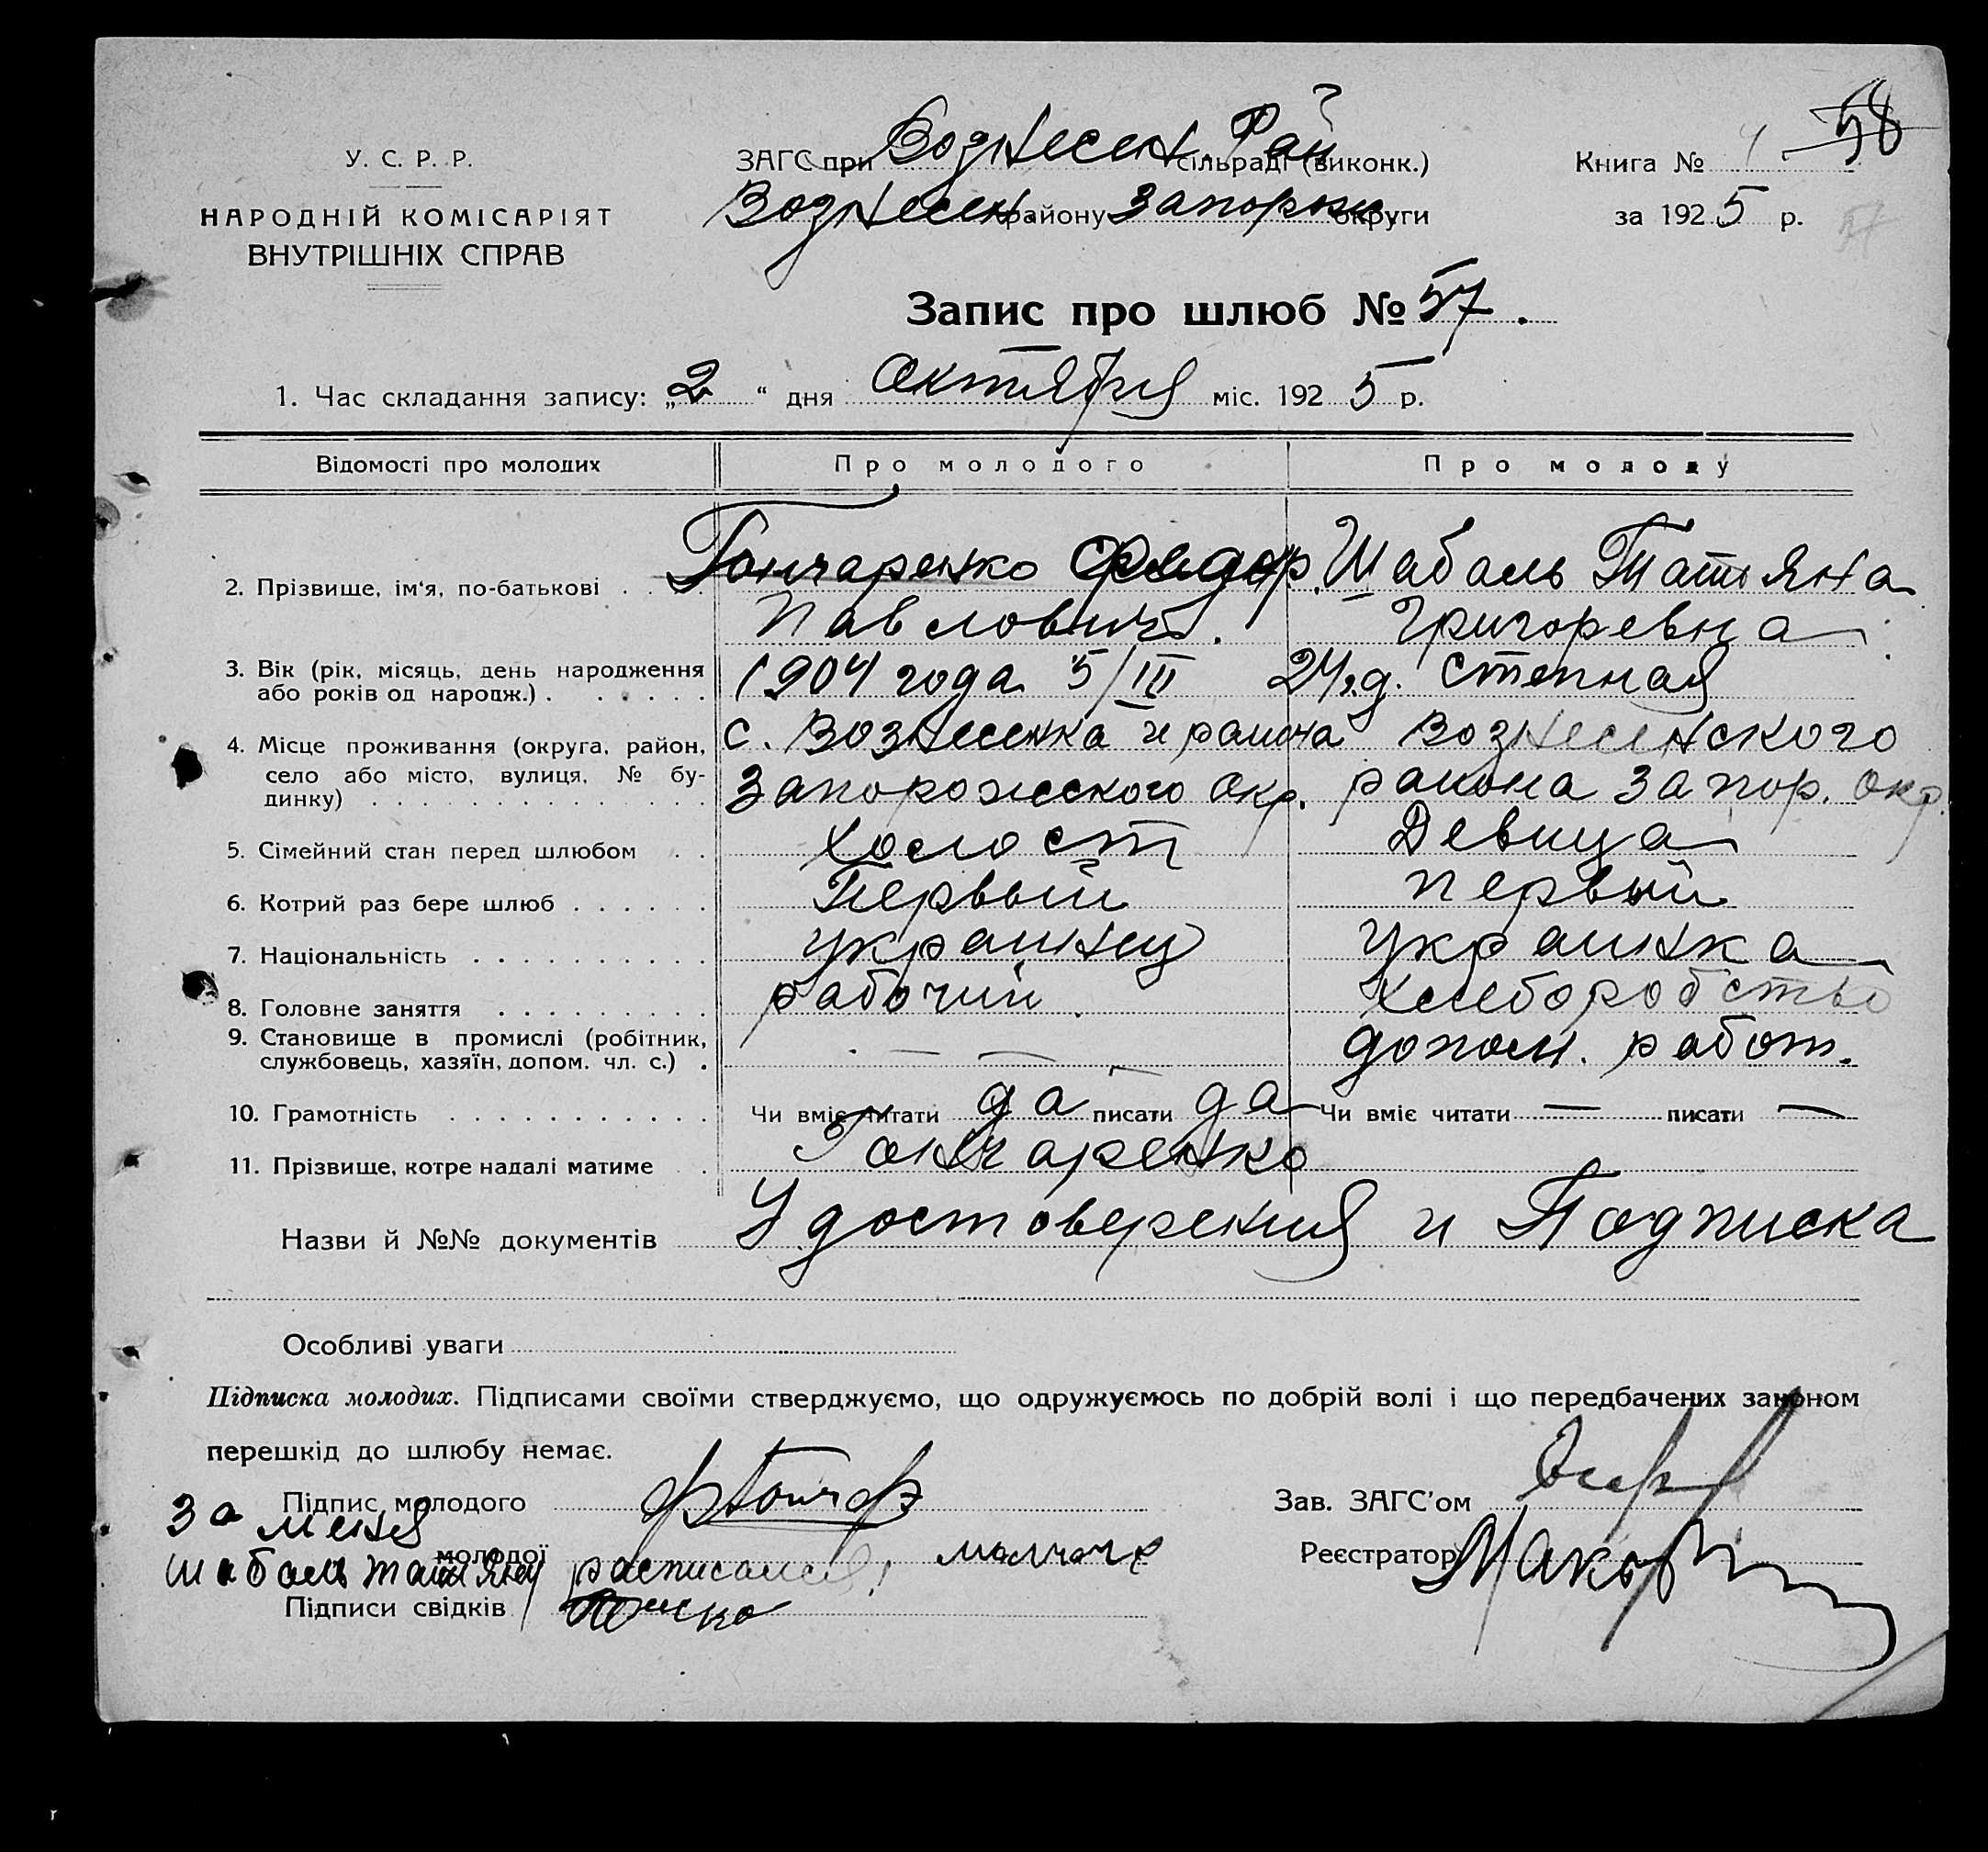 У. С. Р. Р.
НАРОДНІЙ КОМІСАРІЯТ
ВНУТРІШНІХ СПРАВ
ЗАГС при Вознесен. Рай сільраді (виконк.)
Вознесен. району Запорож. округи
Книга № 58
за 1925 р. 57
Запис про шлюб № 57.
1. Час складання запису: „2“ дня Октября міс. 1925 р.
Відомості про молодих Про молодого Про молоду
2. Прізвище, ім‘я, по-батькові . . . . Гончаренко Федор Шабаль Татьяна
Павлович. Григоревна
3. Вік (рік, місяць, день народження 1904 года 5/III 24 г.д. Степная
або років од народж.) . . . . . .
4. Місце проживання (округа, район, с. Вознесенка и района Вознесенского
село або місто, вулиця, № бу- Запорожского Окр. района Запор. Окр.
динку) . . . . . . . . . . . . . .
5. Сімейний стан перед шлюбом . . Холост Девица
6. Котрий раз бере шлюб . . . . . . Первый первый
7. Національність . . . . . . . . . . украинец украинка
8. Головне заняття . . . . . . . . . рабочий. Хлеборобство
9. Становище в промислі (робітник, — — допом. работ.
службовець, хазяїн, допом. чл. с.) .
10. Грамотність . . . . . . . . . . . Чи вміє читати да писати да Чи вміє читати — писати —
11. Прізвище, котре надалі матиме . Гончаренко
Назви й №№ документів Удостоверения и Подписка
Особливі уваги
Підписка молодих. Підписами своїми стверджуємо, що одружуємось по добрій волі і що передбачених законом
перешкід до шлюбу немає.
Підпис молодого ФГончар Зав. ЗАГС’ом
За меня
молодої Реєстратор
Шабаль Татьяну расписался
Підписи свідків